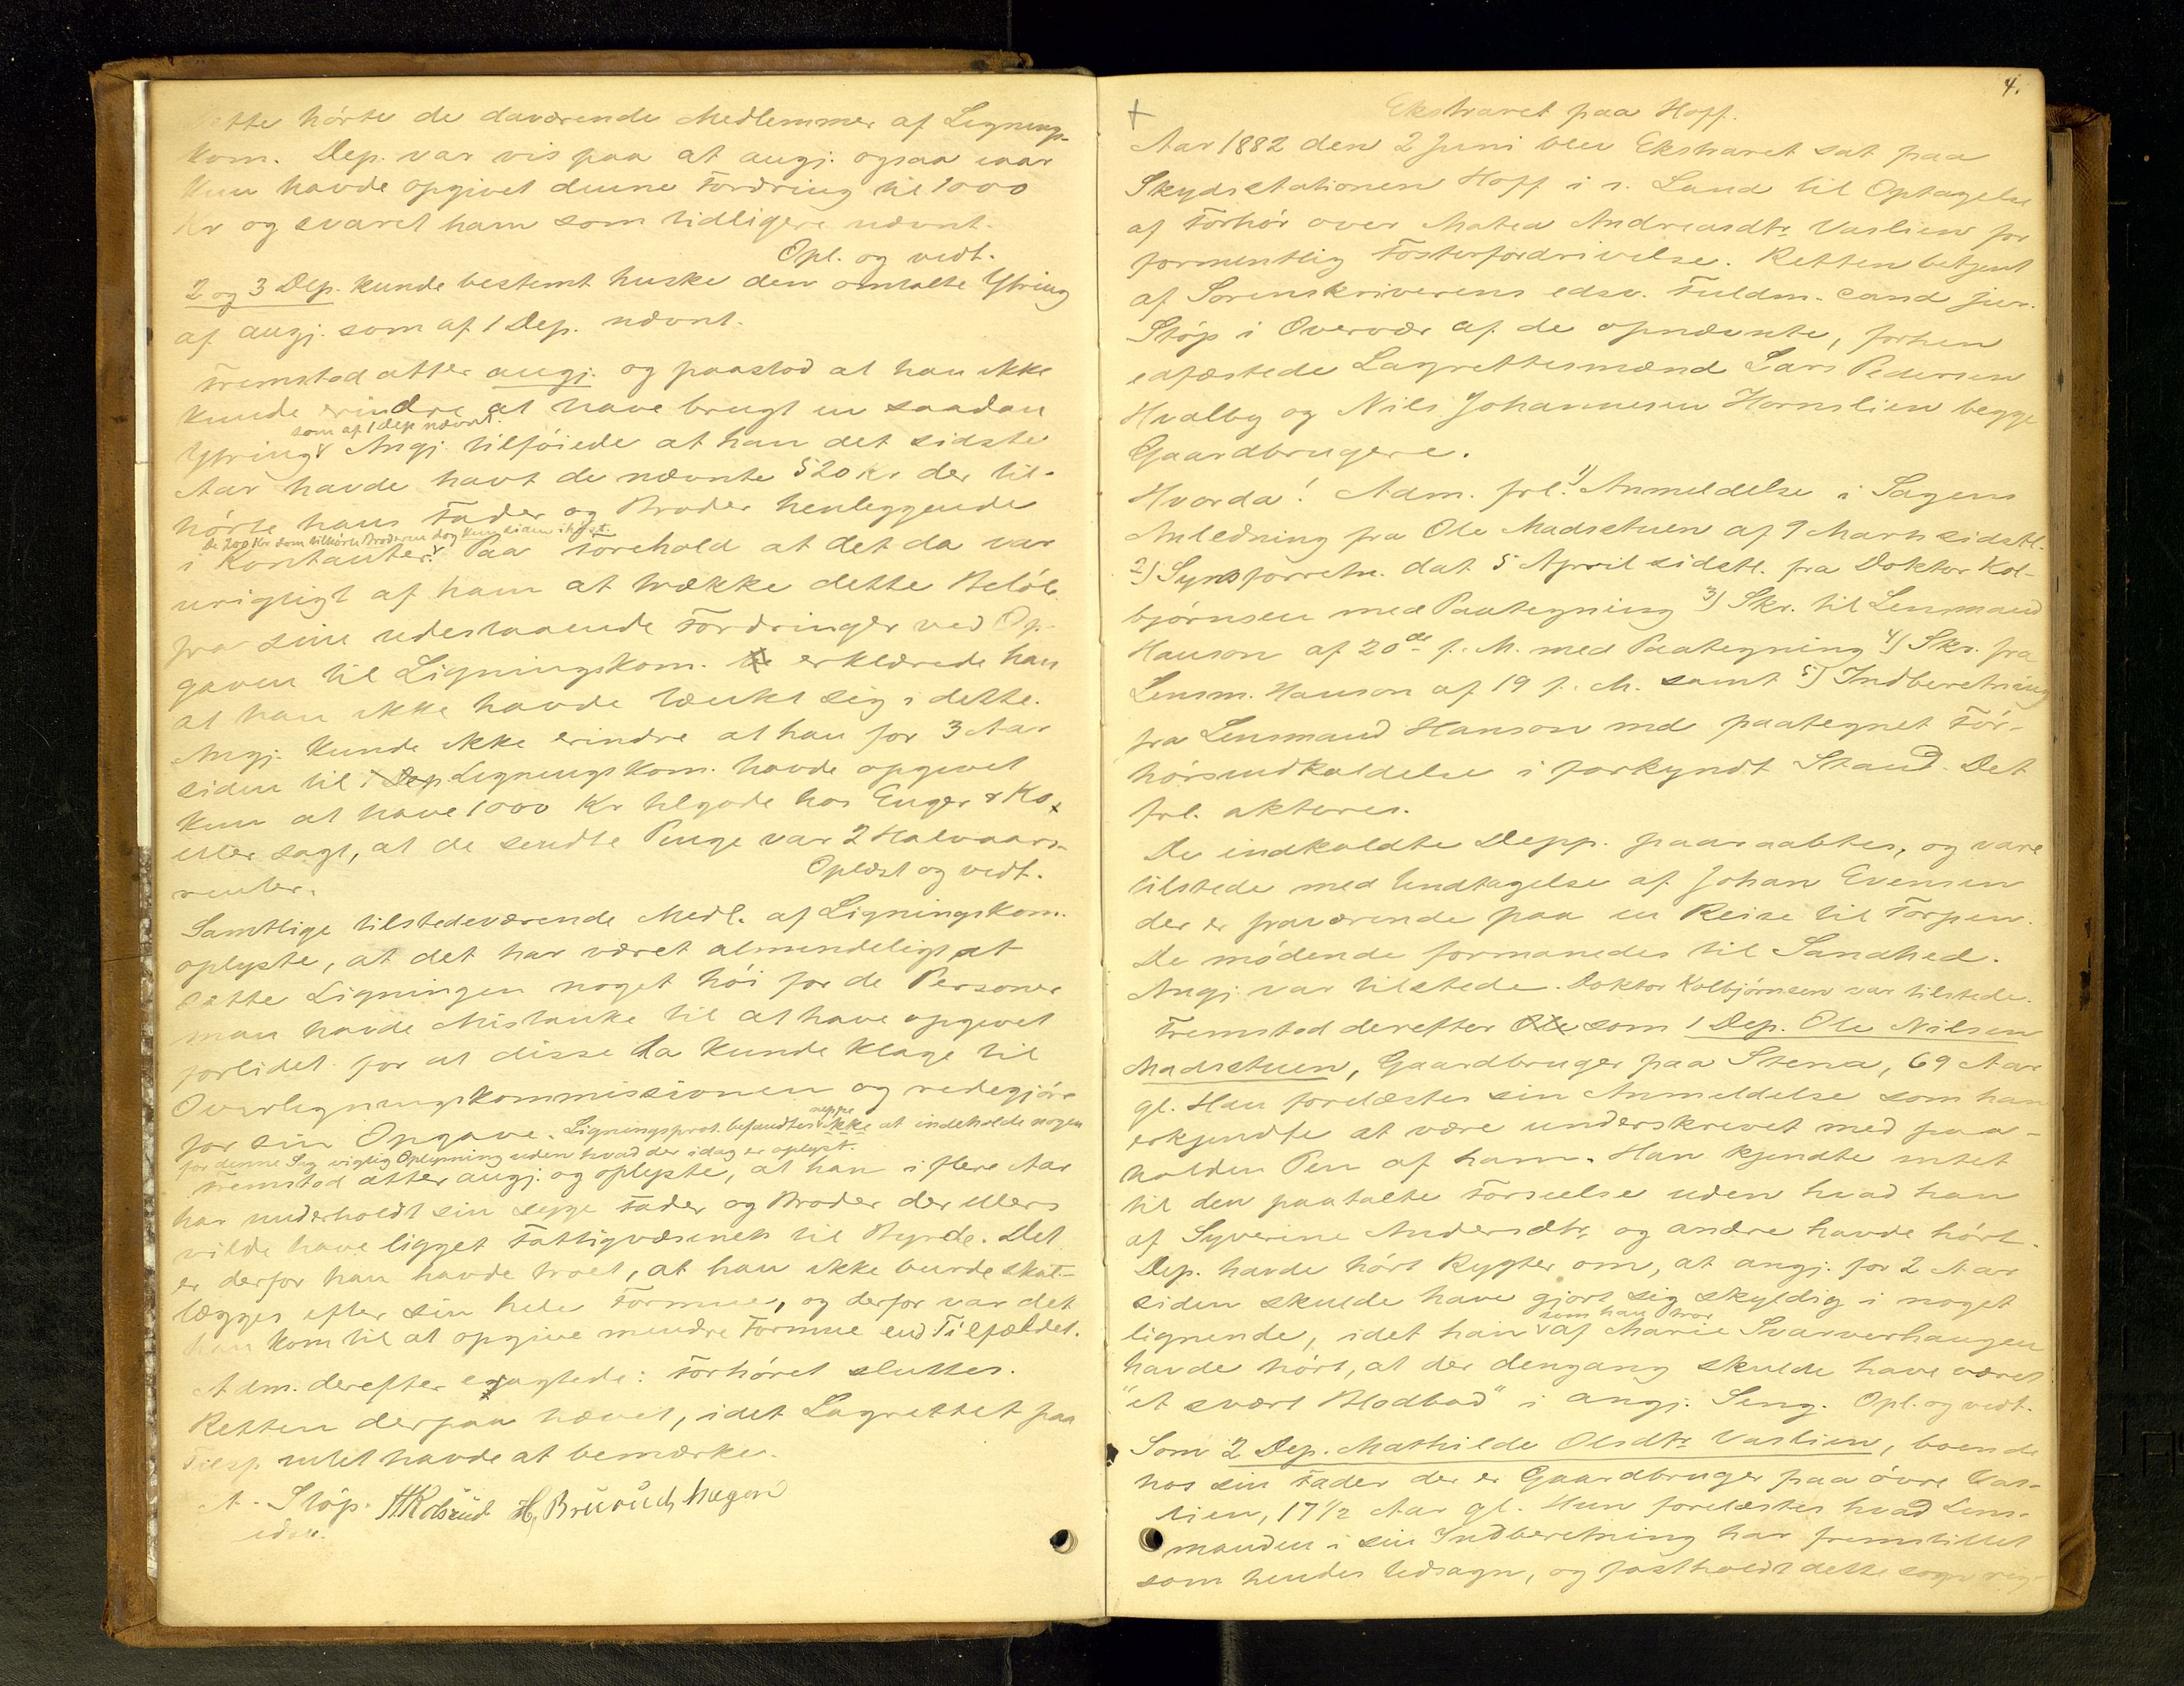 Dette hørte de daværende Medlemmer af Lignings-
kom. Dep. var vis paa at angj. ogsaa iaar
kun havde opgivet denne Fordring til 1000
Kr og svaret ham som tidligere nævnt.
Opl. og vedt.
2 og 3 Dep. kunde bestemt huske den omtalte Ytring
af angj. som af 1 Dep. nævnt.
Fremstod atter angj. og paastod at han ikke
kunde erindre at have brugt en saadan
som af 1 Dep. nævnt.
Ytring. Angj. tilføiede at han det sidste
Aar havde havt de nævnte 520 Kr der til-
hørte hans Fader og Broder henleggende
De 200 Kr som tilhører Broderen dog kun siden ihøst.
i Kontanter. Paa Forehold at det da var
urigtigt af ham at trække dette Beløb
fra sine udestaaende Fordringer ved Op-
gaven til Ligningskom. erklærede han
at han ikke havde tænkt sig i dette.
Angj. kunde ikke erindre at han for 3 Aar
siden til 1 Dep Ligningskom. havde opgivet
kun at have 1000 Kr tilgode hos Enger & Ko
eller sagt, at de sendte Penge var 2 Halvaars-
renter.
Oplæst og vedt.
Samtlige tilstedeværende Medl. af Ligningskom.
oplyste, at det har været almindeligt at
sætte Ligningen noget høi for de Personer
man havde Mistanke til at have opgivet
forlidet for at disse da kunde klage til
Overligningskommissionen og redegjøre
neppe
for sin Opgave. Ligningsprot. befandtes ikke at indeholde nogen
for denne Sag vigtig Oplysning uden hvad der idag er oplyst.
Fremstod atter angj. og oplyste, at han i flere Aar
har underholdt sin syge Fader og Broder der ellers
vilde have ligget Fattigvæsenet til Byrde. Det
er derfor han havde troet, at han ikke burde skat-
lægges efter sin hele Formue, og derfor var det
han kom til at opgive mindre Formue end Tilfældet.
Adm. derefter eragtede: Forhøret sluttes.
Retten derpaa hævet, idet Lagrettet paa
Tilsp. intet havde at bemærke.
A. Støp.
edsv.
4.
Ekstraret paa Hoff.
Aar 1882 den 2 Juni blev Ekstraret sat paa
Skydsstationen Hoff i s. Land til Optagelse
af Forhør over Matea Andreasdtr. Vaslien for
formentlig Fosterfordrivelse. Retten betjent
af Sorenskriverens edsv. Fuldm. cand jur.
Støp i Overvær af de opnævnte, forhen
edfæstede Lagrettesmænd Lars Pedersen
Hvalby og Nils Johannesen Hornslien begge
Gaardbrugere.
Hvorda! Adm. frl. 1) Anmeldelse i Sagens
Anledning fra Ole Madsstuen af 9 Marts sidstl.
2) Synsforretn. dat 5 April sidstl. fra Doktor Kol-
bjørnsen med Paategning 3) Skr. til Lensmand
Hanson af 20de f. M. med Paategning 4) Skr. fra
Lensm. Hanson af 19 f. M. samt 5) Indberetning
fra Lensmand Hanson med paategnet For-
hørsindkaldelse i forkyndt Stand. Det
frl. akteres.
De indkaldte Depp. paaraabtes, og vare
tilstede med Undtagelse af Johan Evensen
der er fraværende paa en Reise til Torpen.
De mødende formanedes til Sandhed.
Angj. var tilstede. Doktor Kolbjørnsen var tilstede.
Fremstod derefter Ole som 1 Dep. Ole Nilsen
Madsstuen, Gaardbruger paa Stena, 69 Aar
gl. Han forelæstes sin Anmeldelse som han
erkjendte at være underskrevet med paa-
holden Pen af ham. Han kjendte intet
til den paatalte Forseelse uden hvad han
af Syverine Andersdtr. og andre havde hørt.
Dep. havde hørt Rygter om, at angj. for 2 Aar
siden skulde have gjort sig skyldig i noget
som han tror
lignende, idet han af Marie Svarverhaugen
havde hørt, at der dengang skulde have været
"et svært Blodbad" i angj. Seng. Opl. og vedt.
Som 2 Dep. Mathilde Olsdtr. Vaslien, boende
hos sin Fader der er Gaardbruger paa øvre Vas-
lien, 17½ Aar gl. Hun forelæstes hvad Lens-
manden i sin Indberetning har fremstillet
som hendes Udsagn, og fastholdt dette